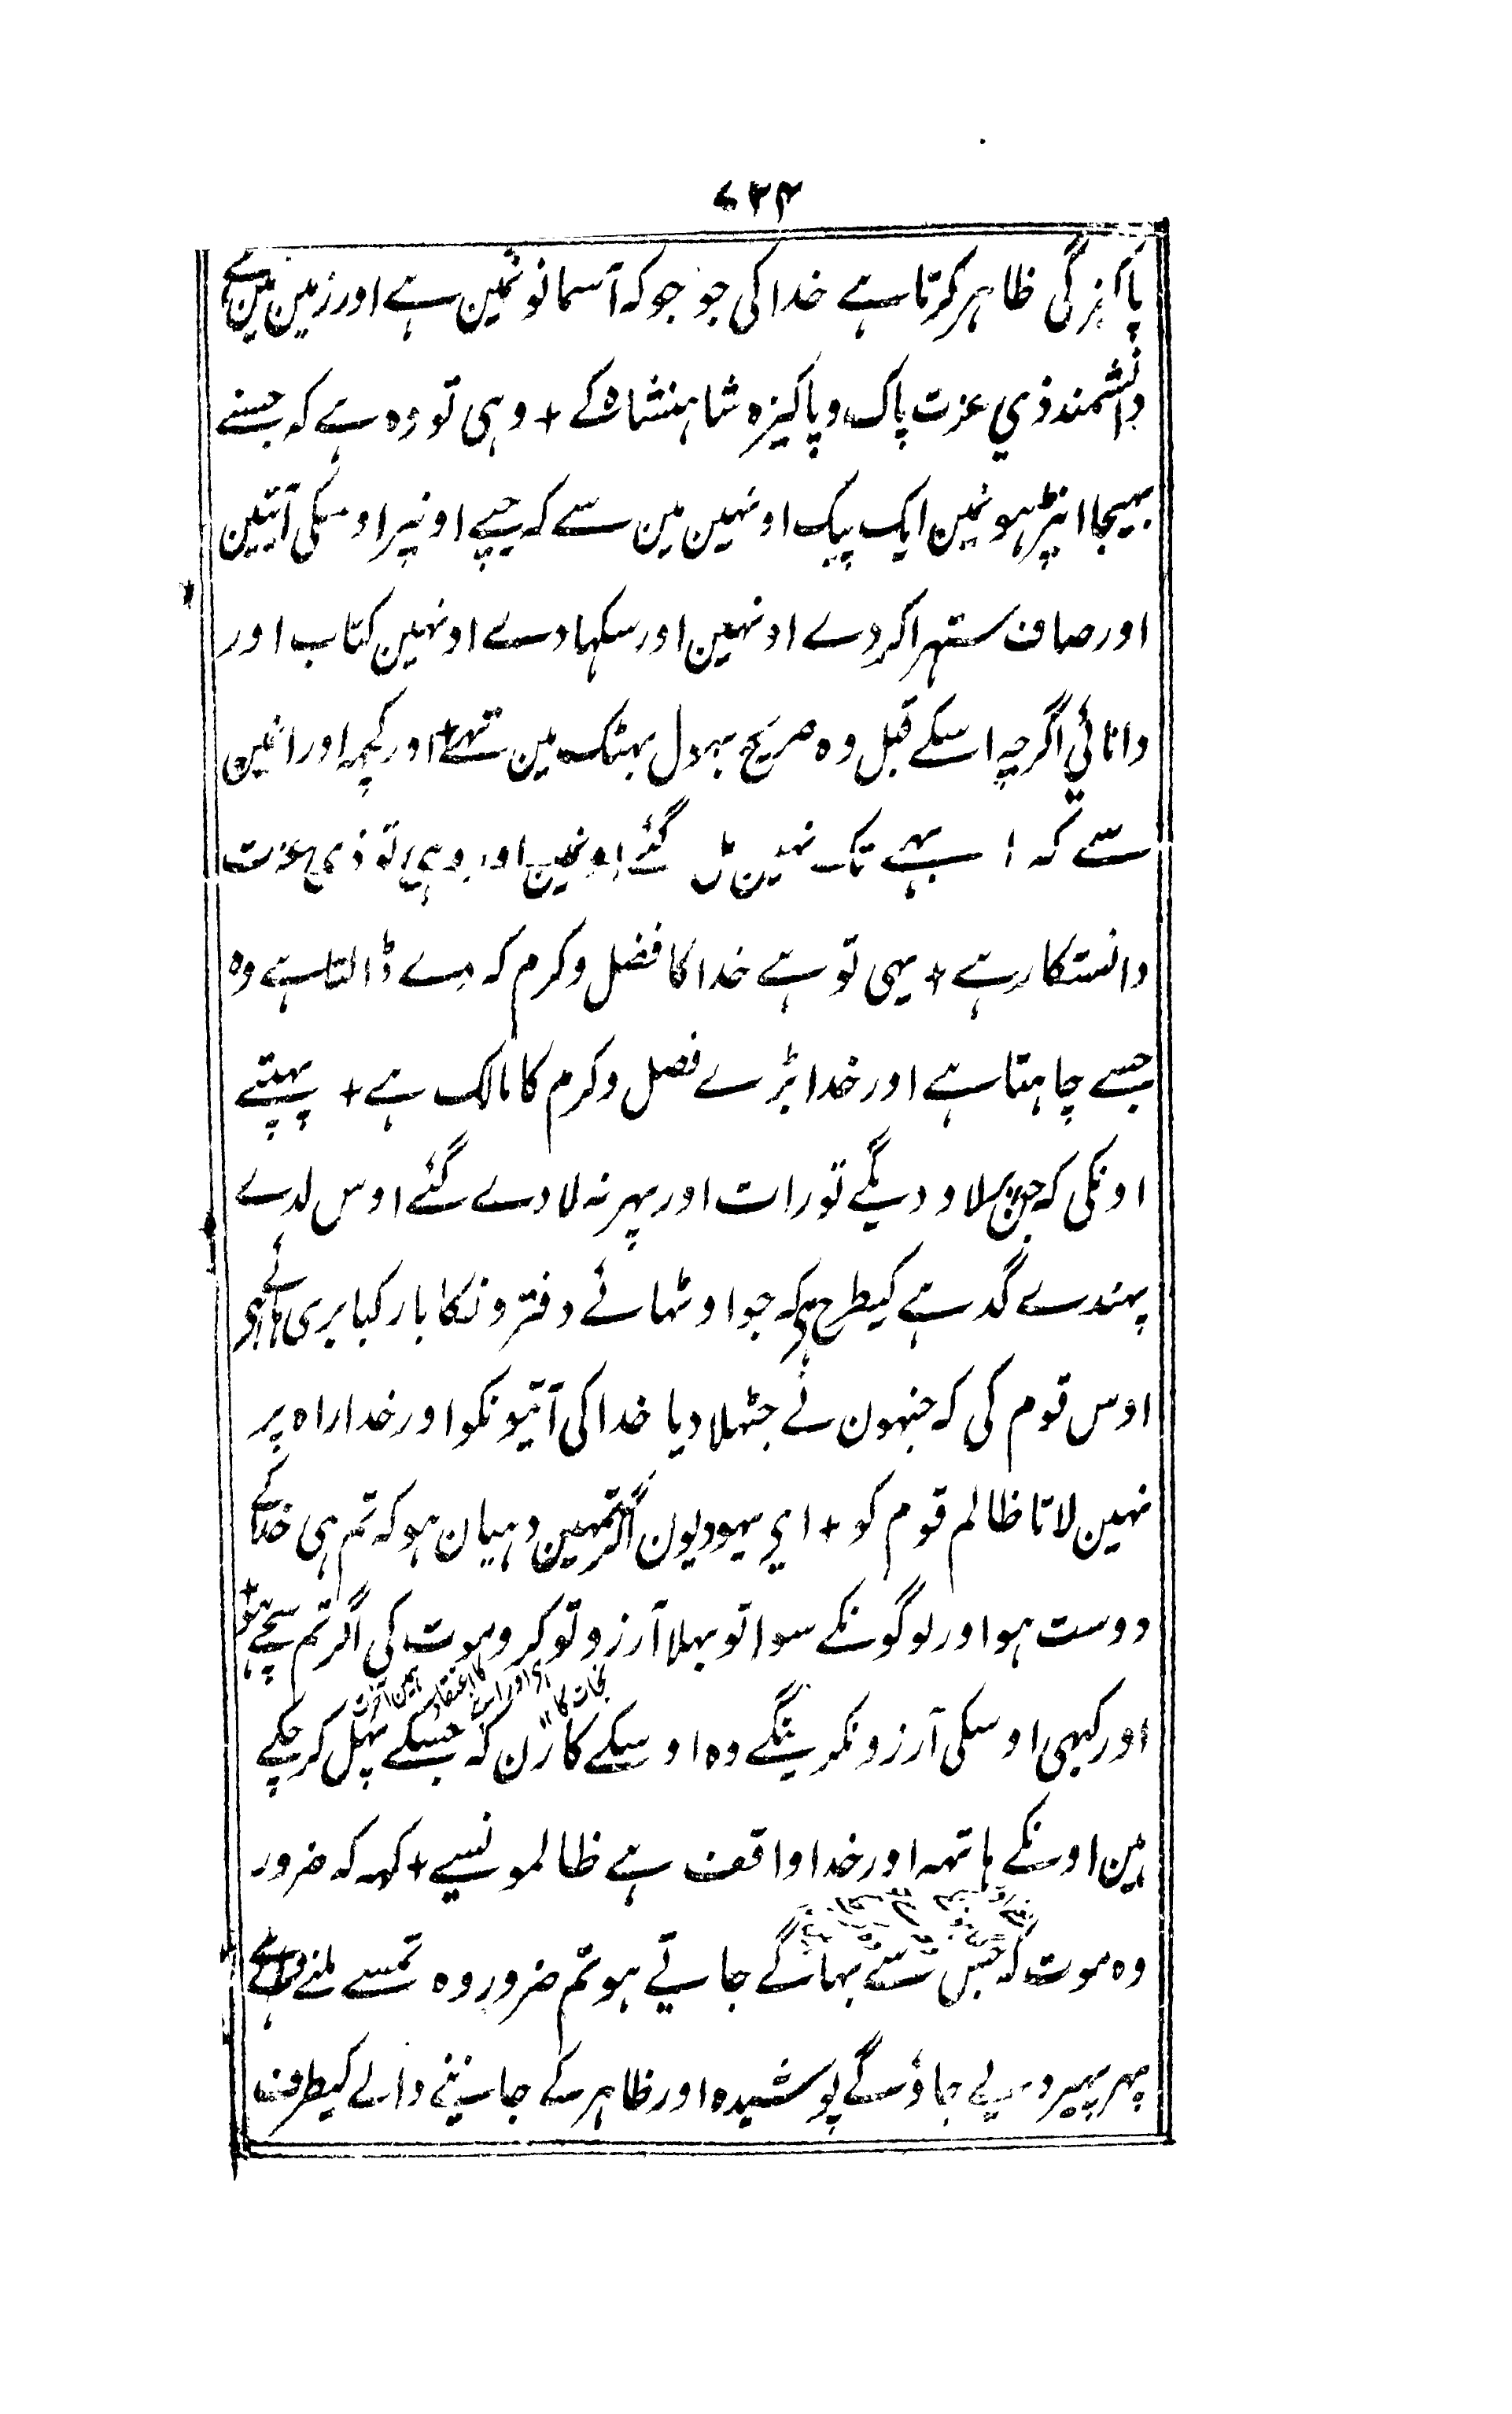 ۷۳۴
پاکیزگی ظاہر کرتا ہے خدا کی جو جو کہ آسمانونمین ہے اور زمین مین ہے
دانشمند ذي عزت پاک و پاکیزہ شاہنشاہ کے + وہی تو وہ ہے کہ جسنے
بہیجا انپڑہونمین ایک پیک اونہین مین سے کہ جپے اونپر اوسکی آیتین
اور صاف ستہرا کردے اونہین اور سکہا دے اونہین کتاب اور
دانائي اگرچہ اسکے قبل وہ صریح بہول بہٹک مین تہے + اور کچہ اور انمین
سے کہ ابہے تک نہین مل گئے اونمین اور وہی تو ذی عزت
دانستکار ہے + یہی تو ہے خدا کا فضل و کرم کہ دے ڈالتا ہے وہ
جسے چاہتا ہے اور خدا بڑے فضل و کرم کا مالک ہے + پہبتے
اونکی کہ جن پر لاد دیگے تورات اور پہر نہ لادے گئے اوس لدے
پہندے گدہے کیطرح ہی کہ جو اوٹہائے دفترونکا بار کیا بری
اوس قوم کی کہ جنہون نے جٹہلا دیا خدا کی آیتیونکو اور خدا راہ پر
نہین لاتا ظالم قوم کو + اي یہودیون اگر تمہین دہیان ہو کہ تم ہی خدا کے
دوست ہو اور لوگونکے سوا تو بہلا آرزو تو کرو موت کی اگر تم سچے ہو +
نجات کا
اور کبہی اوسکی آرزو نکرینگے وہ اوسکے کارن کہ جسکے پہل کر چکے
ہین اونکے ہاتہہ اور خدا واقف ہے ظالمونسے + کہہ کہ ضرور
وہ موت کہ جس سے بہاگے جاتے ہو تم ضرور وہ تمسے ملنے والی ہے
پہر پہیر دیے جاؤگے پوشیدہ اور ظاہر کے جاننے والے کیطرف